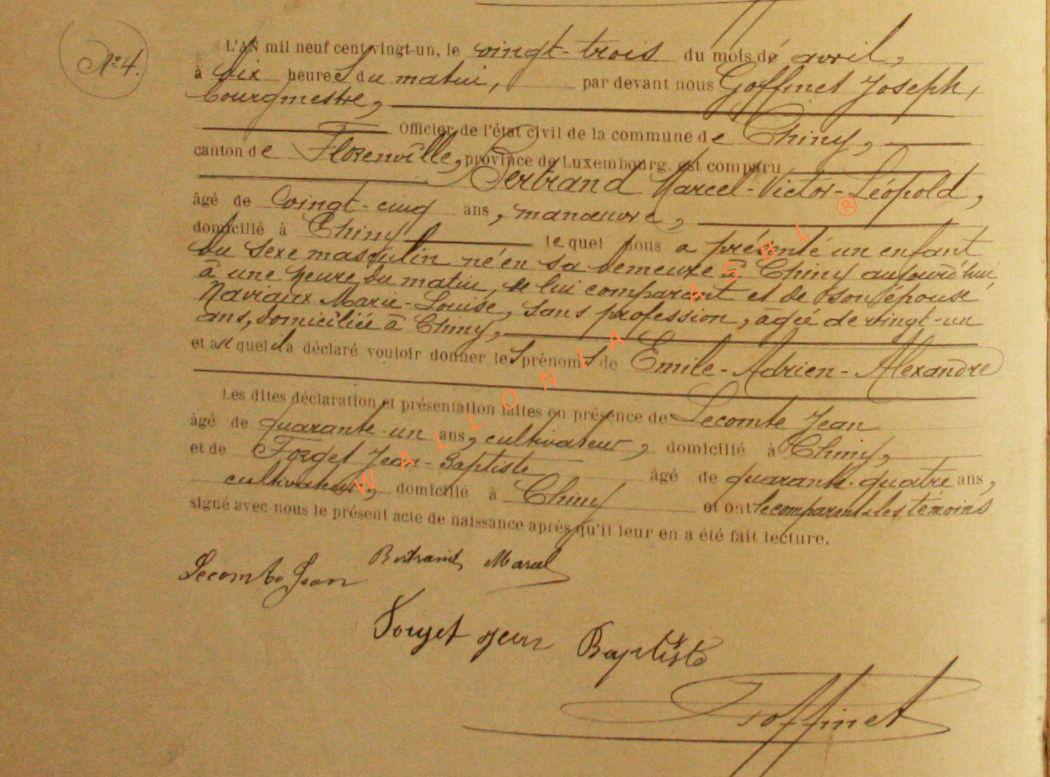 N° 4.
L'AN mil neuf cent vingt-un, le vingt-trois du mois de avril,
à dix heures du matin, par devant nous Goffinet Joseph,
bourgmestre,
Officier de l'état civil de la commune de Chiny,
canton de Florenville, province de Luxembourg, est comparu
Bertrand Marcel-Victor-Léopold,
âgé de vingt-cinq ans, manœuvre,
domicilié à Chiny lequel nous a présenté un enfant
du sexe masculin né en sa demeure à Chiny aujourd'hui
à une heure du matin, de lui comparant et de son épouse
Naviaux Marie-Louise, sans profession, âgée de vingt-un
ans, domiciliée à Chiny,
et auquel il a déclaré vouloir donner les prénoms de Emile-Adrien-Alexandre
Les dites déclaration et présentation faites en présence de Lecomte Jean
âgé de quarante-un ans, cultivateur, domicilié à Chiny,
et de Forget Jean-Baptiste âgé de quarante-quatre ans,
cultivateur, domicilié à Chiny et ont le comparant & les témoins
signé avec nous le présent acte de naissance après qu'il leur en a été fait lecture.
Bertrand Marcel
Lecomte Jean
Forget Jean Baptiste
Goffinet
WALLONIA ASBL ®